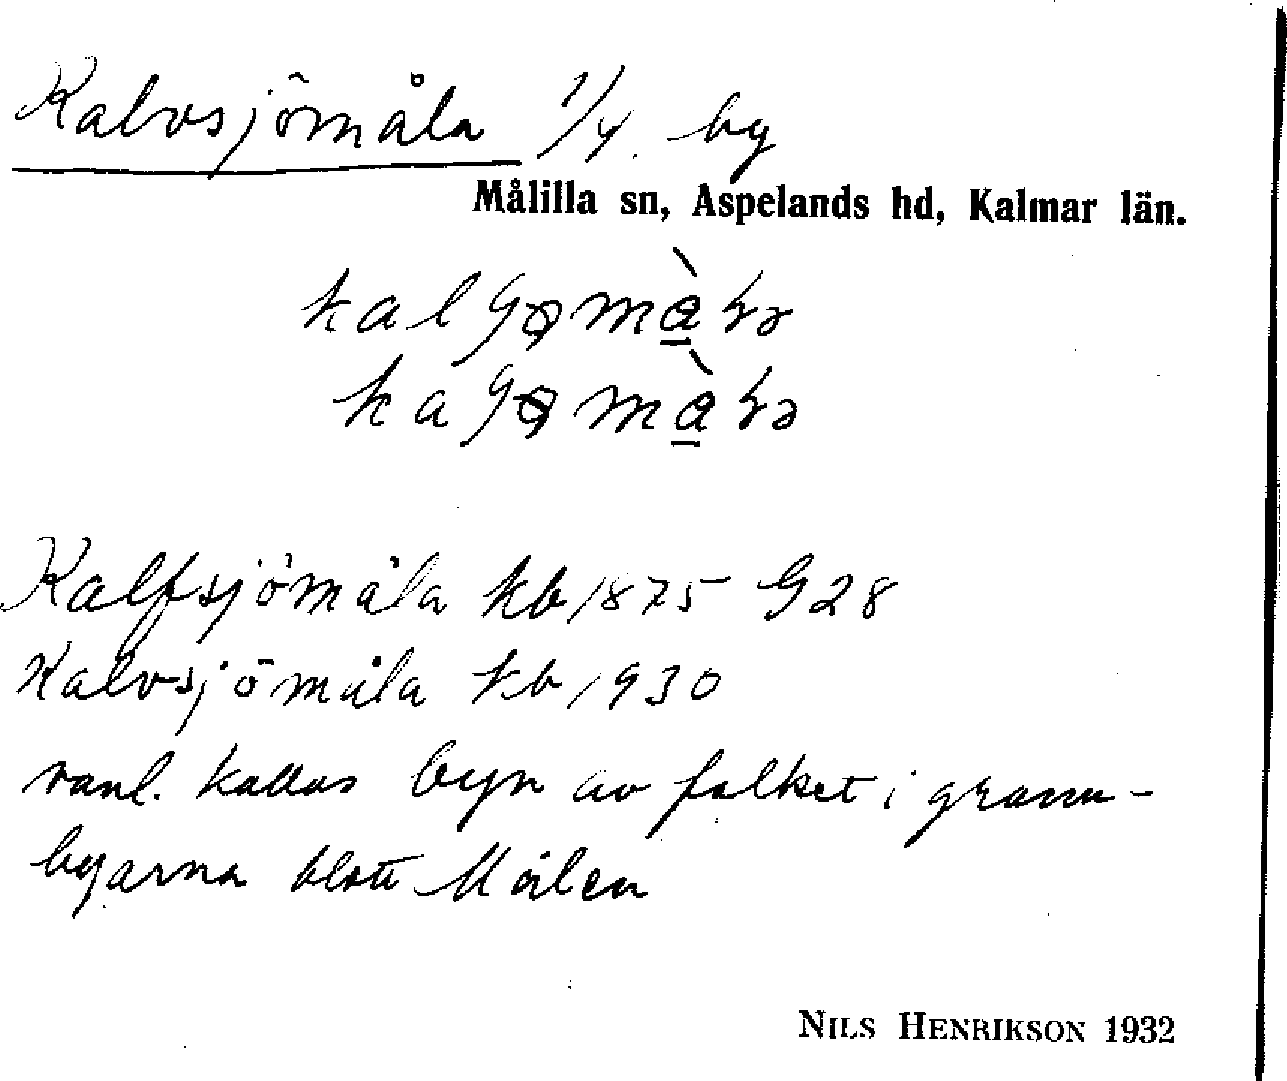 Kalvsjömåla 1/4. by
Målilla sn, Aspelands hd, Kalmar län.
Kalfsjömåla kb 1875 G28
Kalvsjömåla kb 1930
vanl. kallas byn av folket i grann-
byarna blott Målen
NILS HENRIKSON 1932